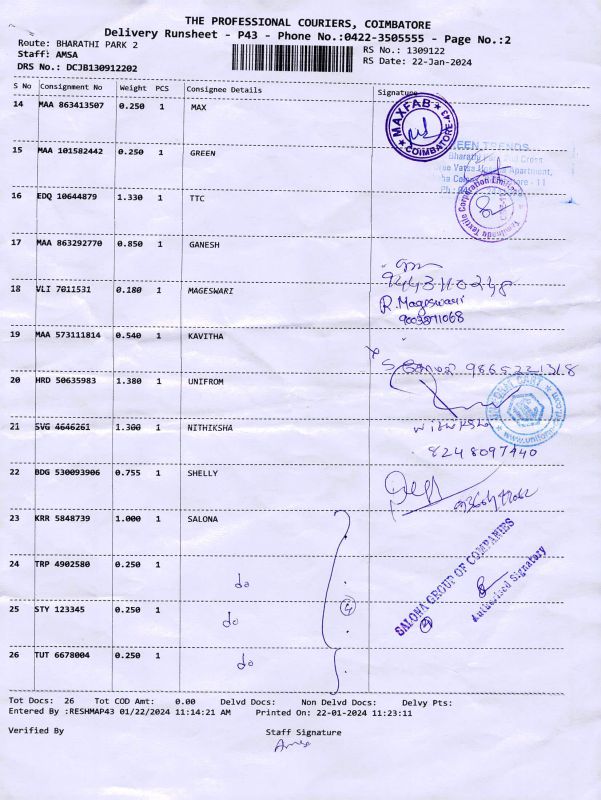 THE PROFESSIONAL COURIERS, COIMBATORE
Delivery Runsheet - P43 - Phone No.:0422-3505555 - Page No.:2
Route: BHARATHI PARK 2
RS No.: 1309122
Staff: AMSA
RS Date: 22-Jan-2024
DRS No.: DCJB130912202
S No Consignment No Weight PCS Consignee Details Signature
14 MAA 863413507 0.250 1 MAX
MAXFAB COIMBATORE-43
15 MAA 101582442 0.250 1 GREEN
GREEN TRENDS
16 EDQ 10644879 1.330 1 TTC
Tamilnadu Textile Corporation Limited
17 MAA 863292770 0.850 1 GANESH
18 VLI 7011531 0.180 1 MAGESWARI
R. Mageswari
19 MAA 573111814 0.540 1 KAVITHA
9865221318
20 HRD 50635983 1.380 1 UNIFROM
21 SVG 4646261 1.300 1 NITHIKSHA
8248097440
22 BDG 530093906 0.755 1 SHELLY
23 KRR 5848739 1.000 1 SALONA
24 TRP 4902580 0.250 1 do
25 STY 123345 0.250 1 do
4
SALONA GROUP OF COMPANIES
4
Authorised Signatory
26 TUT 6678004 0.250 1 do
Tot Docs: 26 Tot COD Amt: 0.00 Delvd Docs: Non Delvd Docs: Delvy Pts:
Entered By :RESHMAP43 01/22/2024 11:14:21 AM Printed On: 22-01-2024 11:23:11
Verified By Staff Signature
Amsa